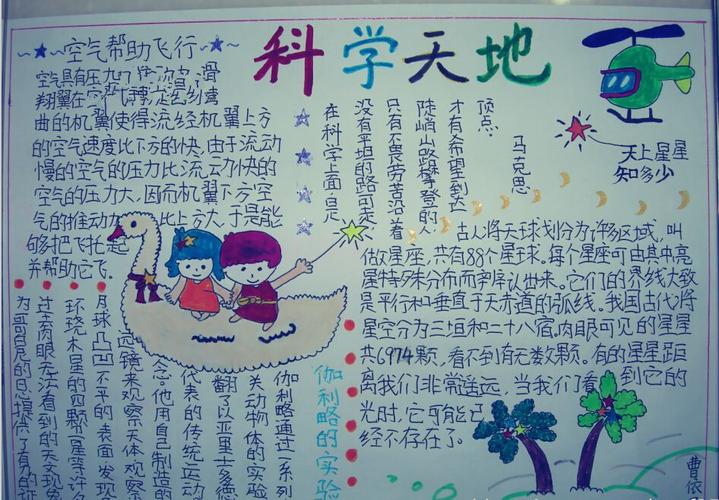 科学天地
空气帮助飞行
空气具有压力
曲的机翼使得流经机翼上方
的空气速度比下方的快,由于流动
慢的空气的压力比流动快的
空气的压力大,因而机翼下方空
气的推动力比上方大,于是能
够把飞托起
并帮助它飞。
在科学上面是
没有平坦的路可走
只有不畏劳苦沿着
陡峭山路攀登的人
才有希望到达
顶点。
马克思
天上星星
知多少
古人将天球划分为许多区域,叫
做星座,共有88个星球。每个星座可由其中亮
星特殊分布而辨认出来。它们的界线大致
是平行和垂直于天赤道的弧线。我国古代将
星空分为三垣和二十八宿,肉眼可见的星星
共6974颗,看不到有无数颗。有的星星距
离我们非常遥远,当我们看到它的
光时,它可能已
经不存在了。
伽利略的实验
伽利略通过一系列
关动物体的实验
翻了以亚里士多德
代表的传统运动
念。他用自己制造的
远镜来观察天体观察
月球凸凹不平的表面发现
环绕木星的四颗卫星等许多
过去肉眼无法看到的天文现象
为哥白尼的日
曹依